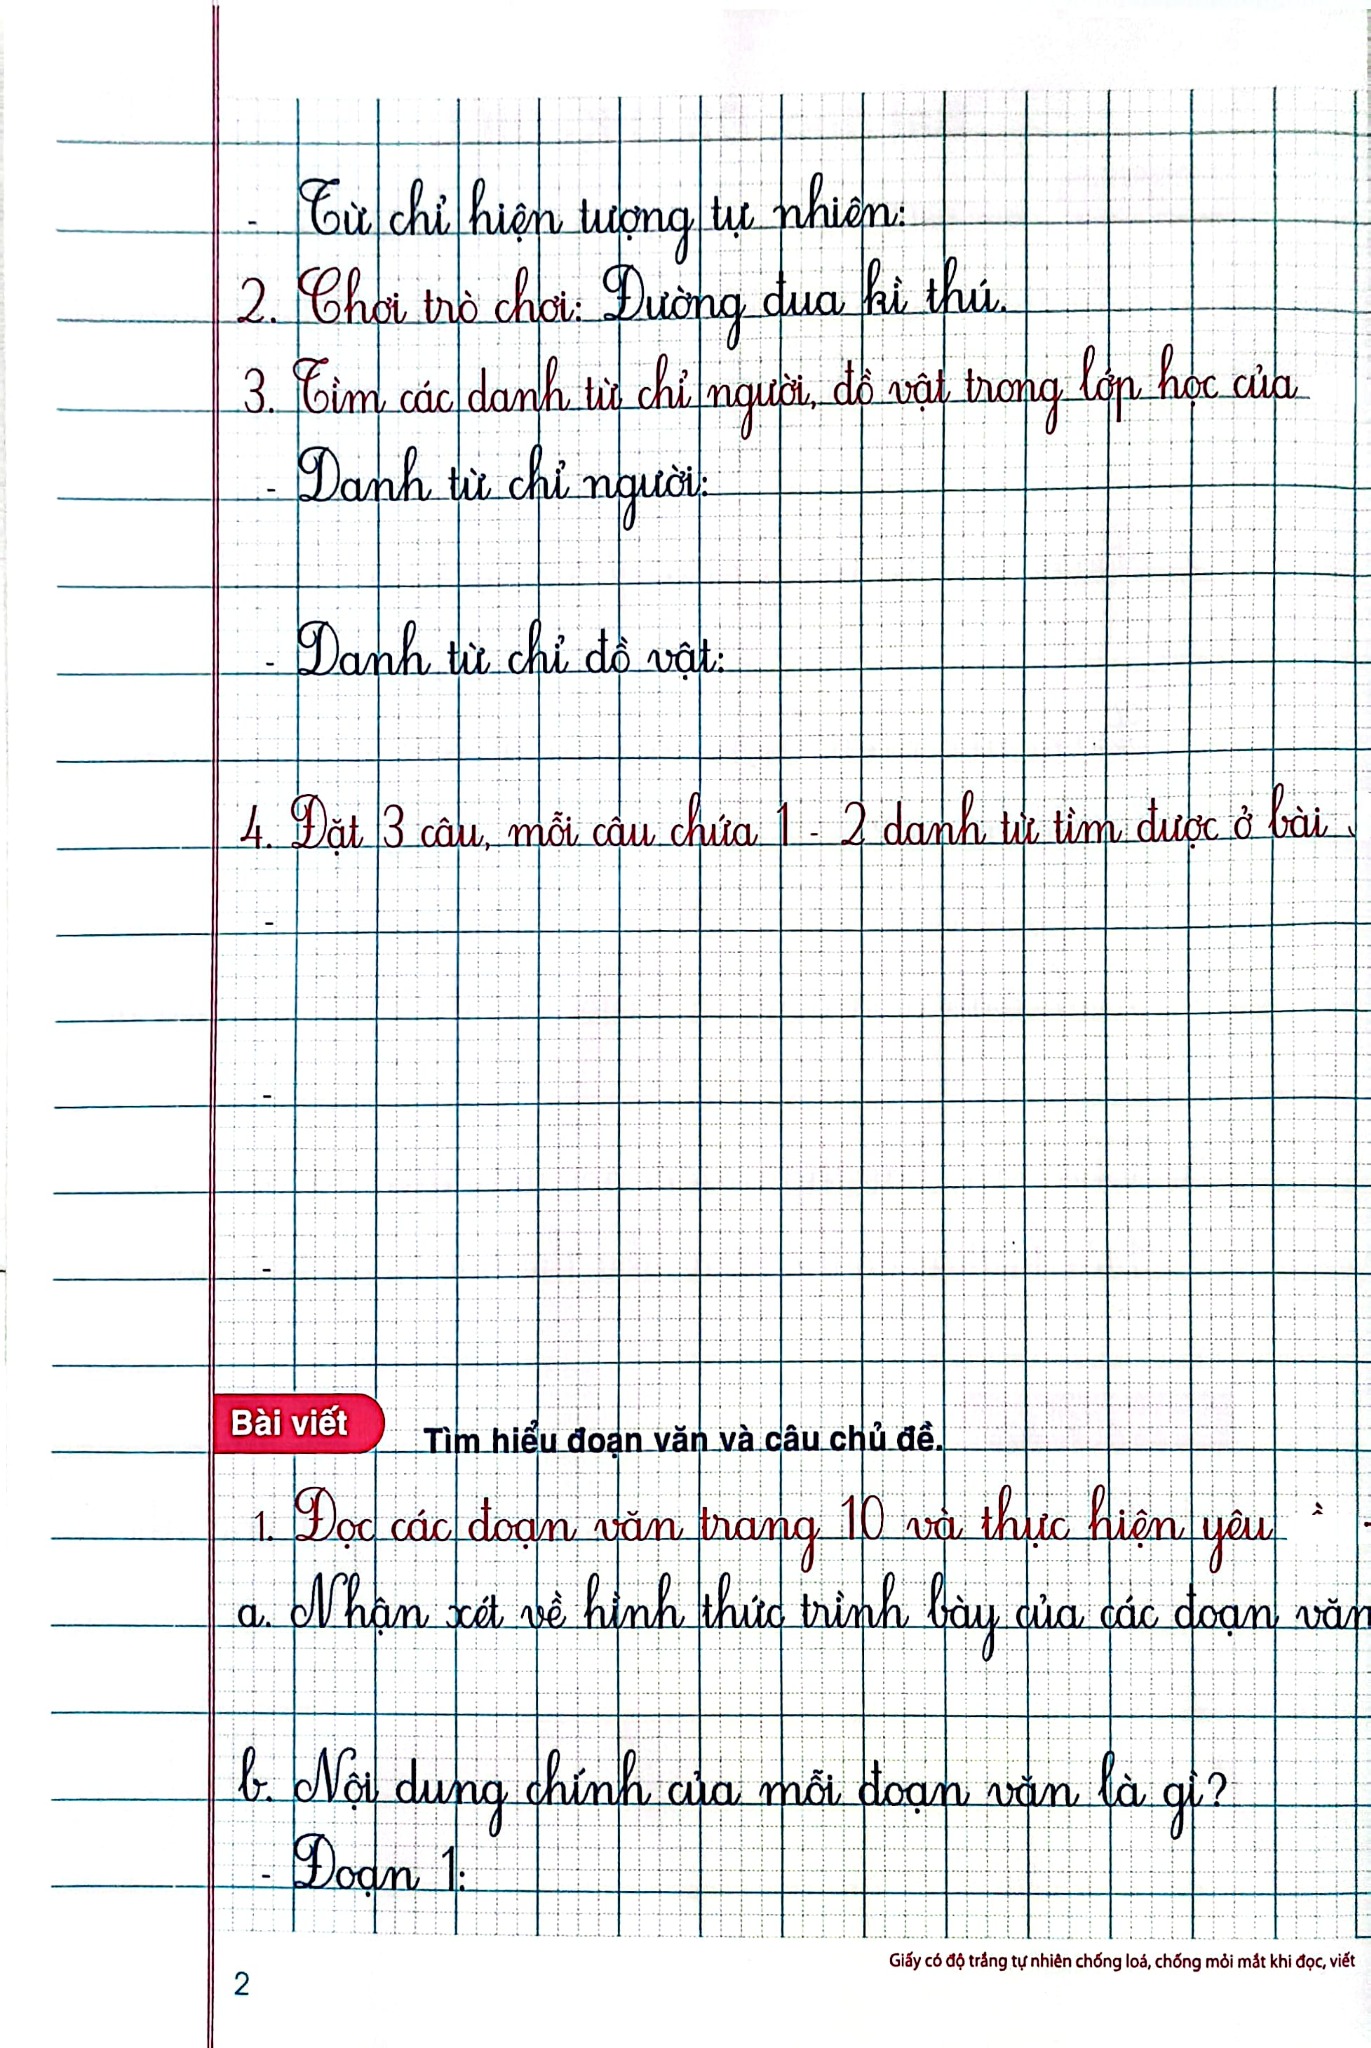 - Từ chỉ hiện tượng tự nhiên:
2. Chơi trò chơi: Đường đua kì thú.
3. Tìm các danh từ chỉ người, đồ vật trong lớp học của
- Danh từ chỉ người:
- Danh từ chỉ đồ vật:
4. Đặt 3 câu, mỗi câu chứa 1 - 2 danh từ tìm được ở bài
-
-
-
Bài viết Tìm hiểu đoạn văn và câu chủ đề.
1. Đọc các đoạn văn trang 10 và thực hiện yêu
a. Nhận xét về hình thức trình bày của các đoạn văn
b. Nội dung chính của mỗi đoạn văn là gì?
- Đoạn 1:
Giấy có độ trắng tự nhiên chống loá, chống mỏi mắt khi đọc, viết
2